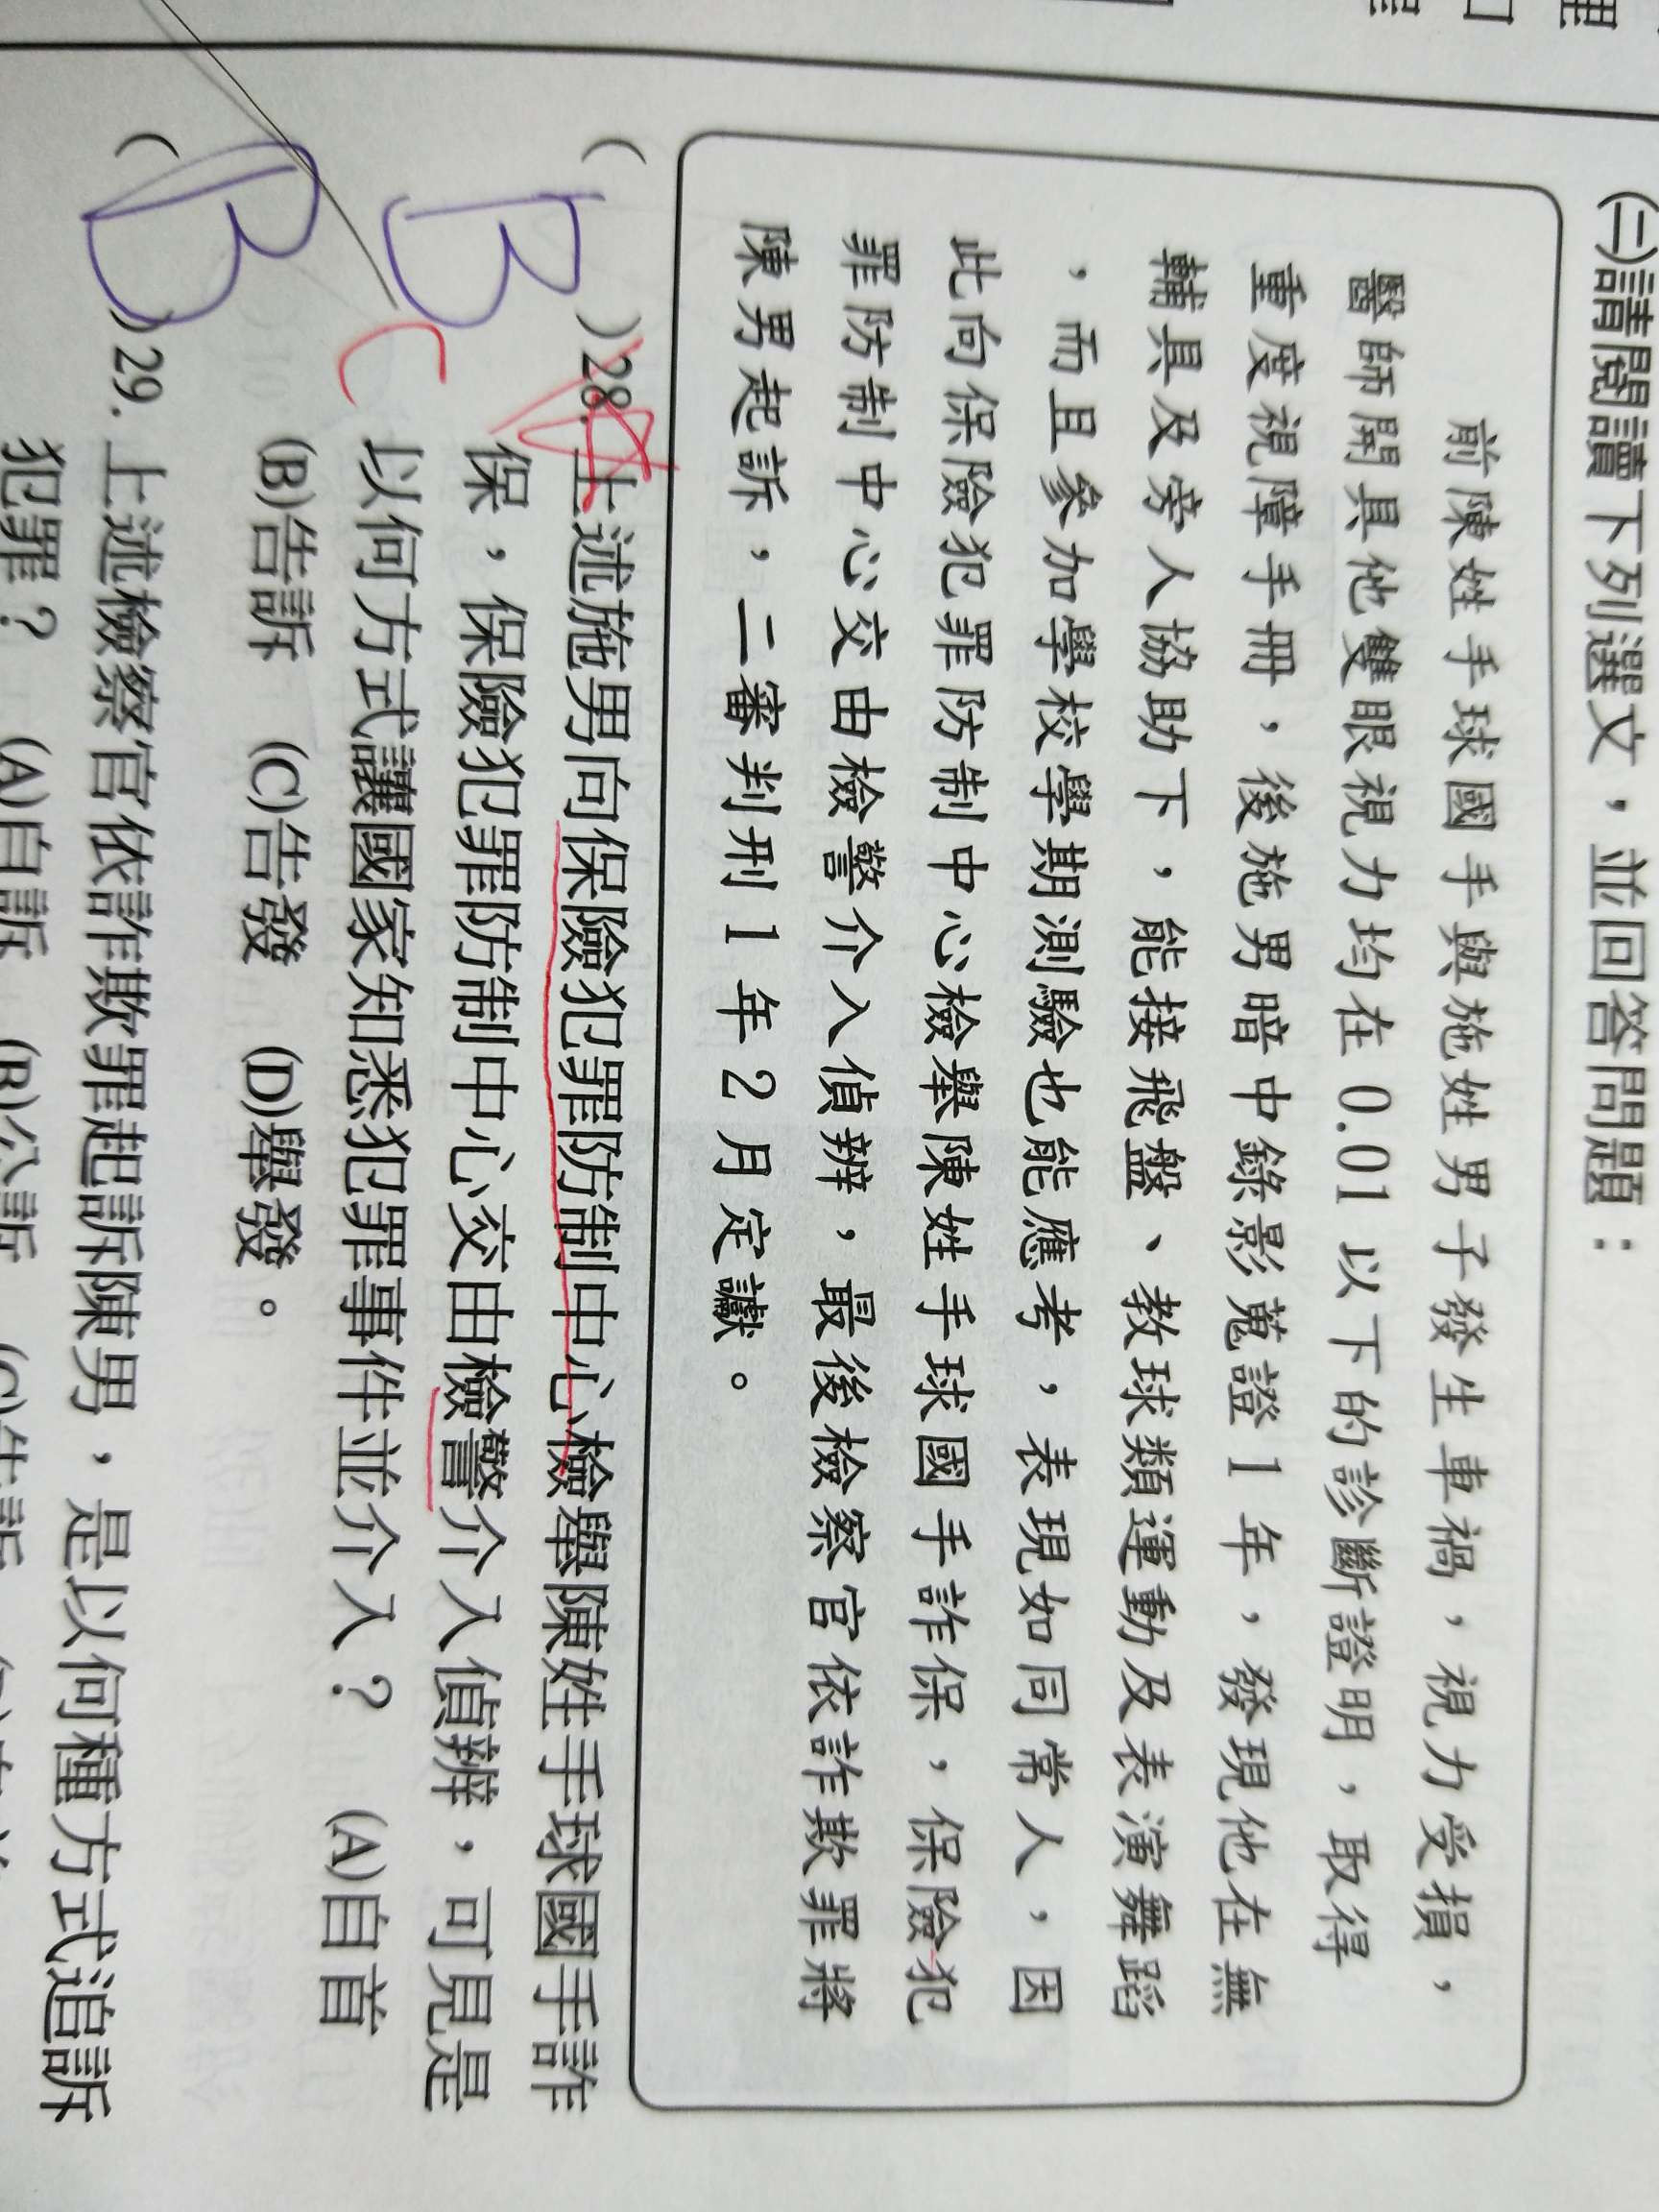 (二)請閱讀下列選文，並回答問題：
前陳姓手球國手與施姓男子發生車禍，視力受損，
醫師開具他雙眼視力均在 0.01 以下的診斷證明，取得
重度視障手冊，後施男暗中錄影蒐證 1 年，發現他在無
輔具及旁人協助下，能接飛盤、教球類運動及表演舞蹈
，而且參加學校學期測驗也能應考，表現如同常人，因
此向保險犯罪防制中心檢舉陳姓手球國手詐保，保險犯
罪防制中心交由檢警介入偵辦，最後檢察官依詐欺罪將
陳男起訴，二審判刑 1 年 2 月定讞。
( B )28.上述施男向保險犯罪防制中心檢舉陳姓手球國手詐
保，保險犯罪防制中心交由檢警介入偵辦，可見是
C
以何方式讓國家知悉犯罪事件並介入？ (A)自首
(B)告訴 (C)告發 (D)舉發。
( B )29.上述檢察官依詐欺罪起訴陳男，是以何種方式追訴
犯罪？ (A)自訴 (B)公訴